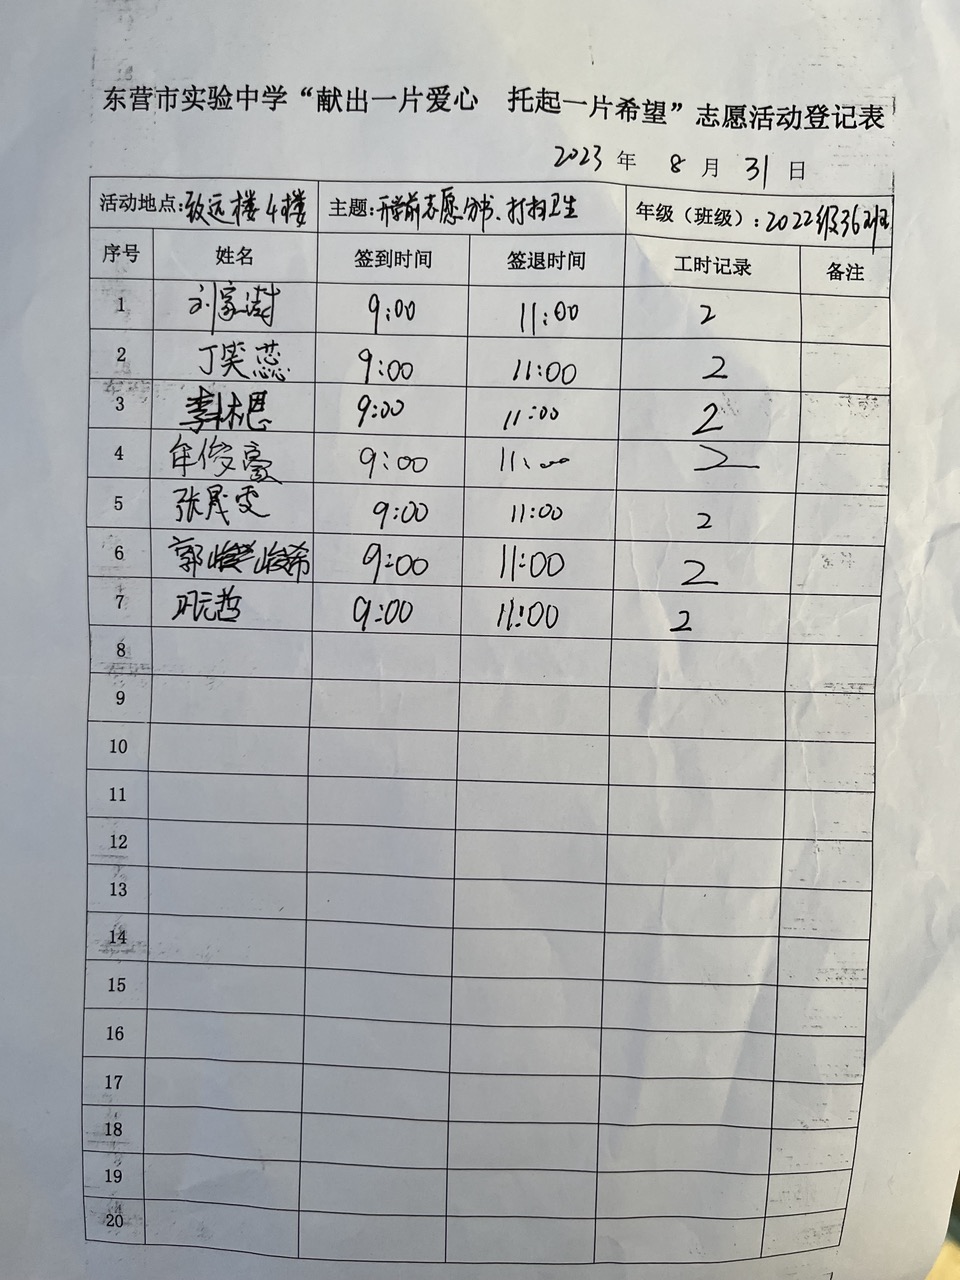 东营市实验中学“献出一片爱心 托起一片希望”志愿活动登记表
2023 年 8 月 31 日
活动地点:致远楼4楼 主题:开学前志愿分书、打扫卫生 年级（班级）:2022级36班
序号 姓名 签到时间 签退时间 工时记录 备注
1 刘家澍 9:00 11:00 2
2 丁笑蕊 9:00 11:00 2
3 李林思 9:00 11:00 2
4 牟俊豪 9:00 11:00 2
5 张晟雯 9:00 11:00 2
6 郭 峻希 9:00 11:00 2
7 巩元哲 9:00 11:00 2
8
9
10
11
12
13
14
15
16
17
18
19
20